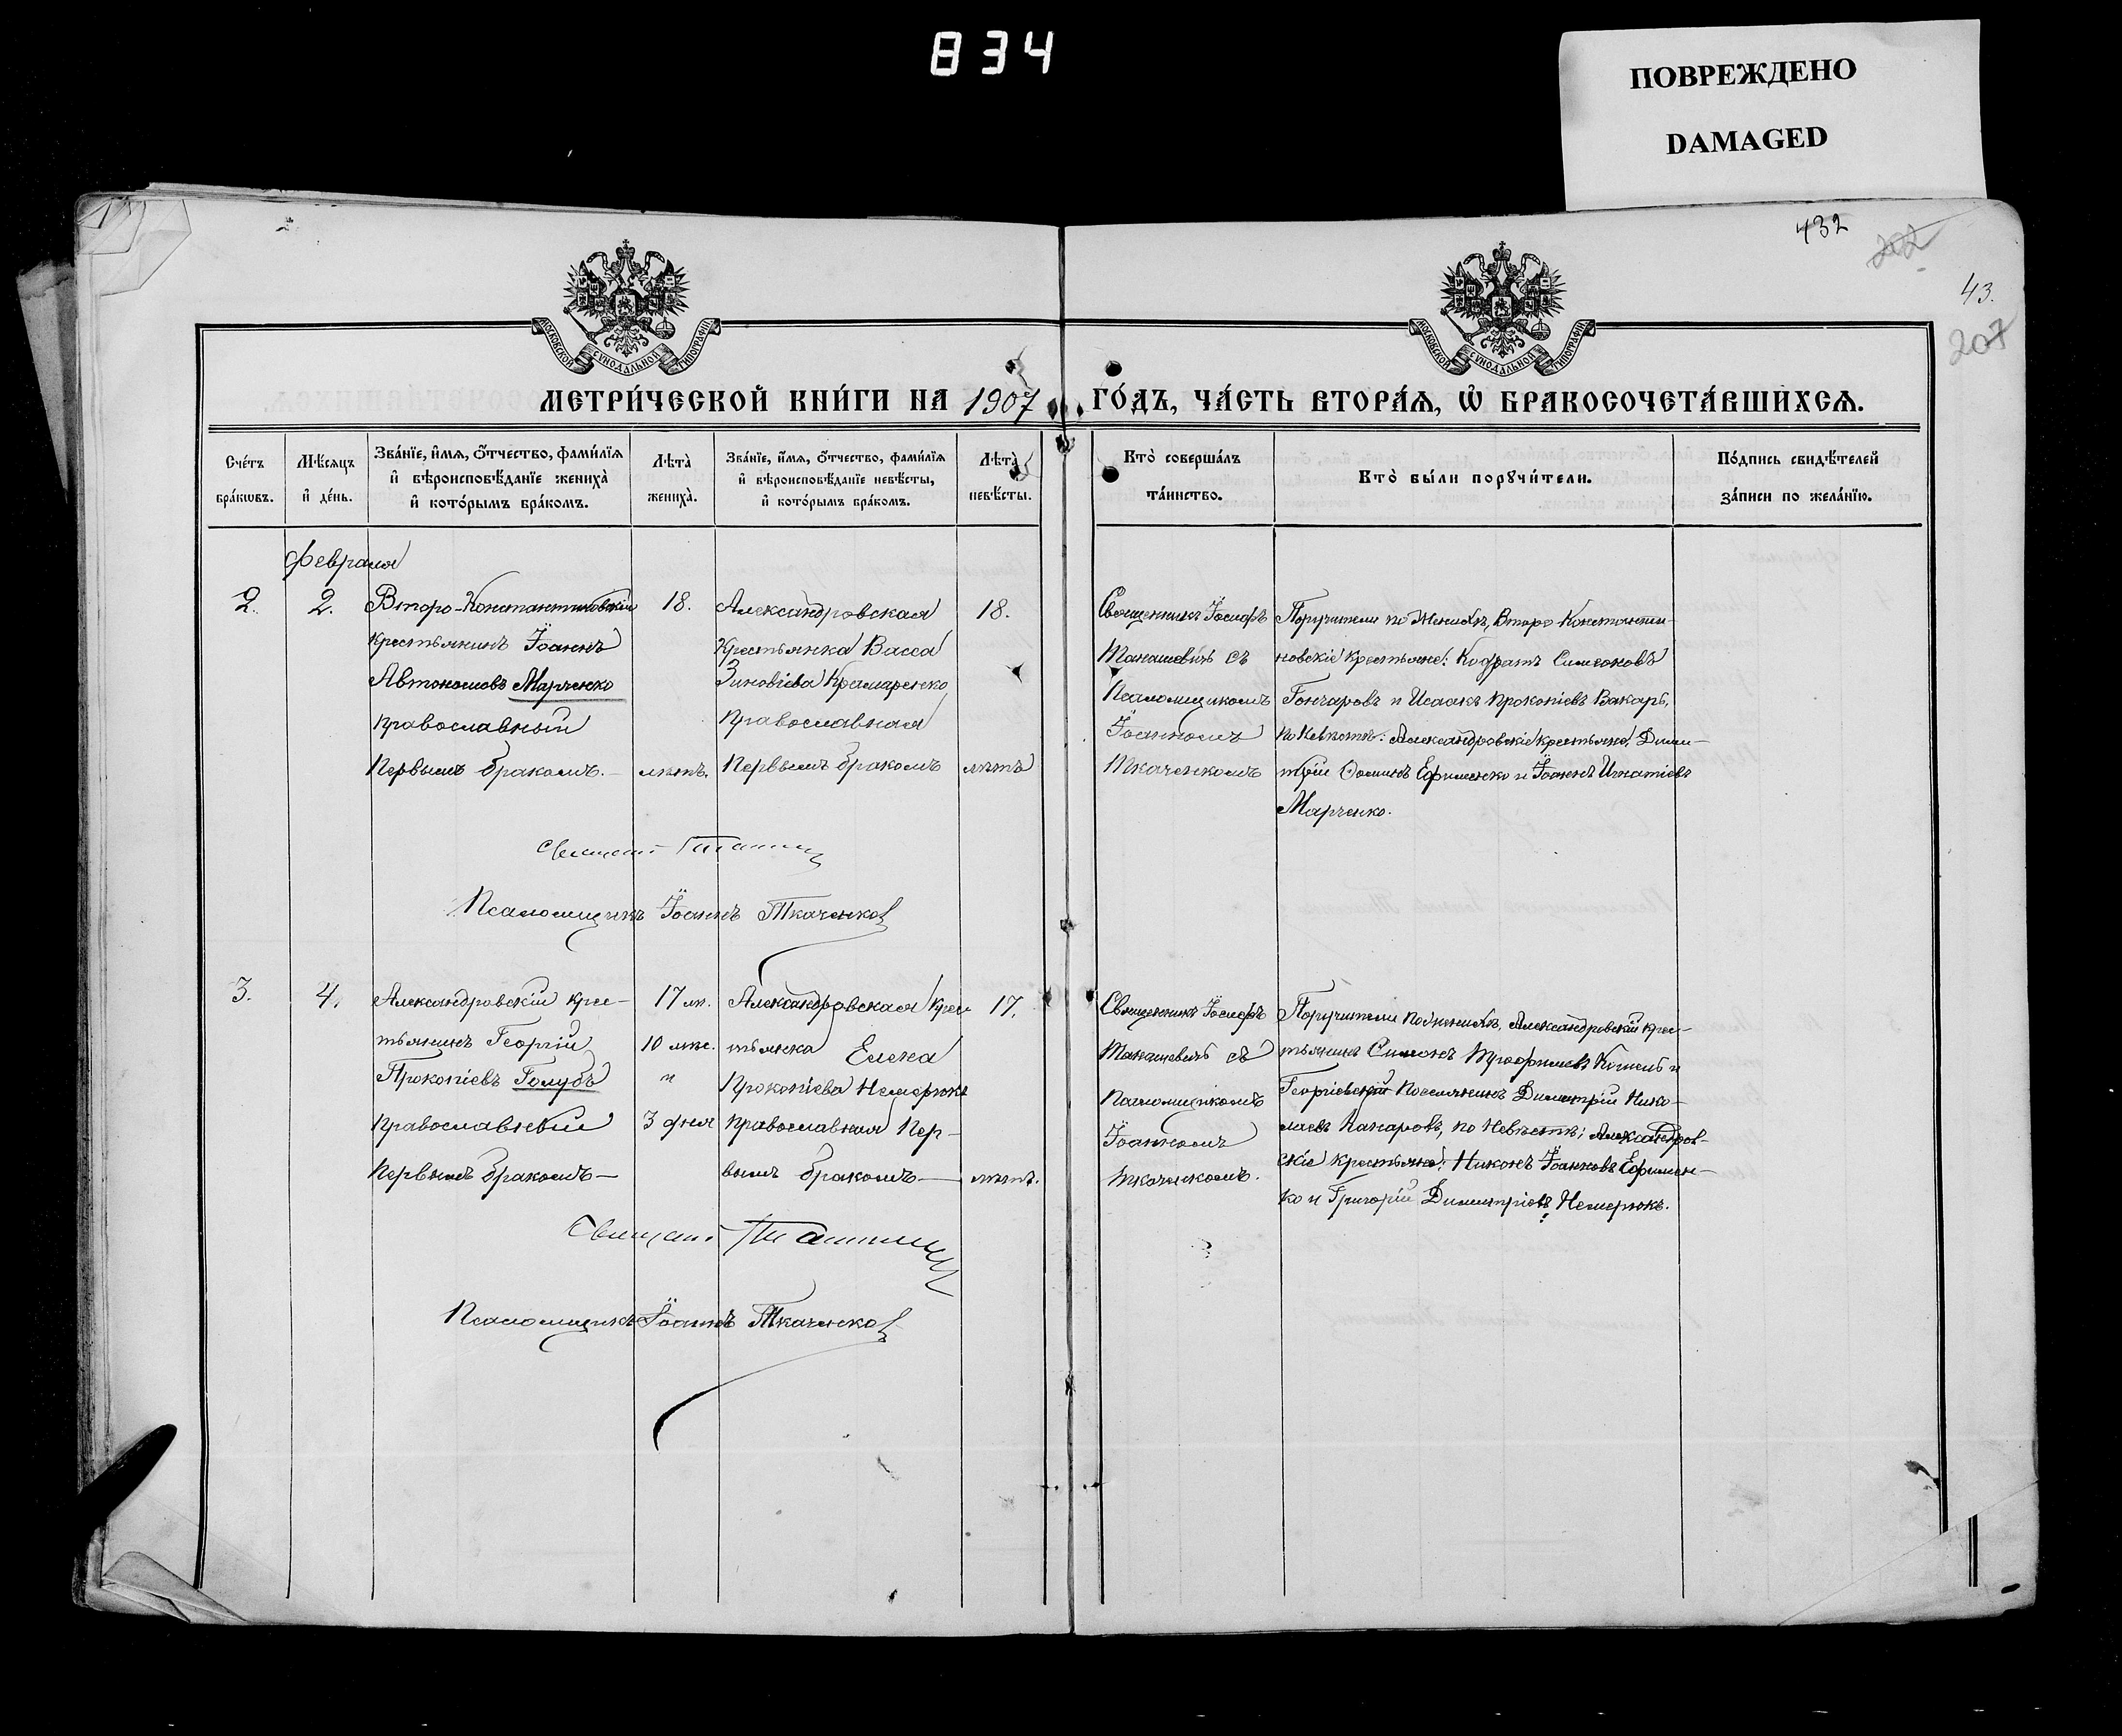 834
ПОВРЕЖДЕНО
DAMAGED
432
202
43.
207
МОСКОВСКОЙ СѴНОДАЛЬНОЙ ТИПОГРАФІИ
МОСКОВСКОЙ СѴНОДАЛЬНОЙ ТИПОГРАФІИ
МЕТРИ́ЧЕСКОЙ КНИ́ГИ НА 1907 ГО́ДЪ, ЧА́СТЬ ВТОРА́Ѧ, Ѡ҆ БРАКОСОЧЕТА́ВШИХСѦ.
Сче́тъ бра́кѡвъ.
Мѣ́сѧцъ и҆ де́нь.
Зва́нїе, и҆́мѧ, ѻ҆́тчество, фами́лїѧ
и҆ вѣроисповѣ́данїе жениха̀
и҆ кото́рымъ бра́комъ.
Лѣта̀ жениха̀.
Зва́нїе, и҆́мѧ, ѻ҆́тчество, фами́лїѧ
и҆ вѣроисповѣ́данїе невѣ́сты,
и҆ кото́рымъ бра́комъ.
Лѣта̀ невѣ́сты.
Кто̀ соверша́лъ
та́инство.
Кто̀ бы́ли порꙋчи́тели.
По́дпись свидѣ́телей
за́писи по жела́нїю.
Февраля
2.
2.
Второ-Константиновскій
крестьянинъ Іоаннъ
Автономовъ Марченко
православный
первымъ бракомъ.—
18.
лѣтъ.
Александровская
крестьянка Васса
Зиновіева Крамаренко,
православная
первымъ бракомъ
18.
лѣтъ
Священникъ Іосифъ
Манашевичъ съ
Псаломщикомъ
Іоанномъ
Ткаченкомъ
Поручители по женихѣ, Второ-Константи-
новскіе крестьяне: Кодратъ Симеоновъ
Гончаровъ и Исаакъ Прокопіевъ Вакарь,
по невѣстѣ: Александровскіе крестьяне, Дими-
трій Ѳоминъ Ефименко и Іоаннъ Игнатіевъ
Марченко.
Священ.
Псаломщикъ Іоаннъ Ткаченко
3.
4.
Александровскій крес-
тьянинъ Георгій
Прокопіевъ Голубъ
православный
первымъ бракомъ—
17 лѣ.
10 мѣс.
и
3 дня
Александровская крес
тьянка Елена
Прокопіева Немерюкъ
православная пер-
вымъ бракомъ—
17.
лѣтъ.
Священникъ Іосифъ
Манашевичъ съ
Псаломщикомъ
Іоанномъ
Ткаченкомъ.
Поручители по женихѣ, Александровскій крес-
тьянинъ Симеонъ Трофимовъ и
Георгіевскій поселянинъ Димитрій Нико-
лаевъ по невѣстѣ: Александров-
скіе крестьяне: Никонъ Іоанновъ Ефимен-
ко и Григорій Димитріевъ Немерюкъ.
Священ.
Псаломщикъ Іоаннъ Ткаченко